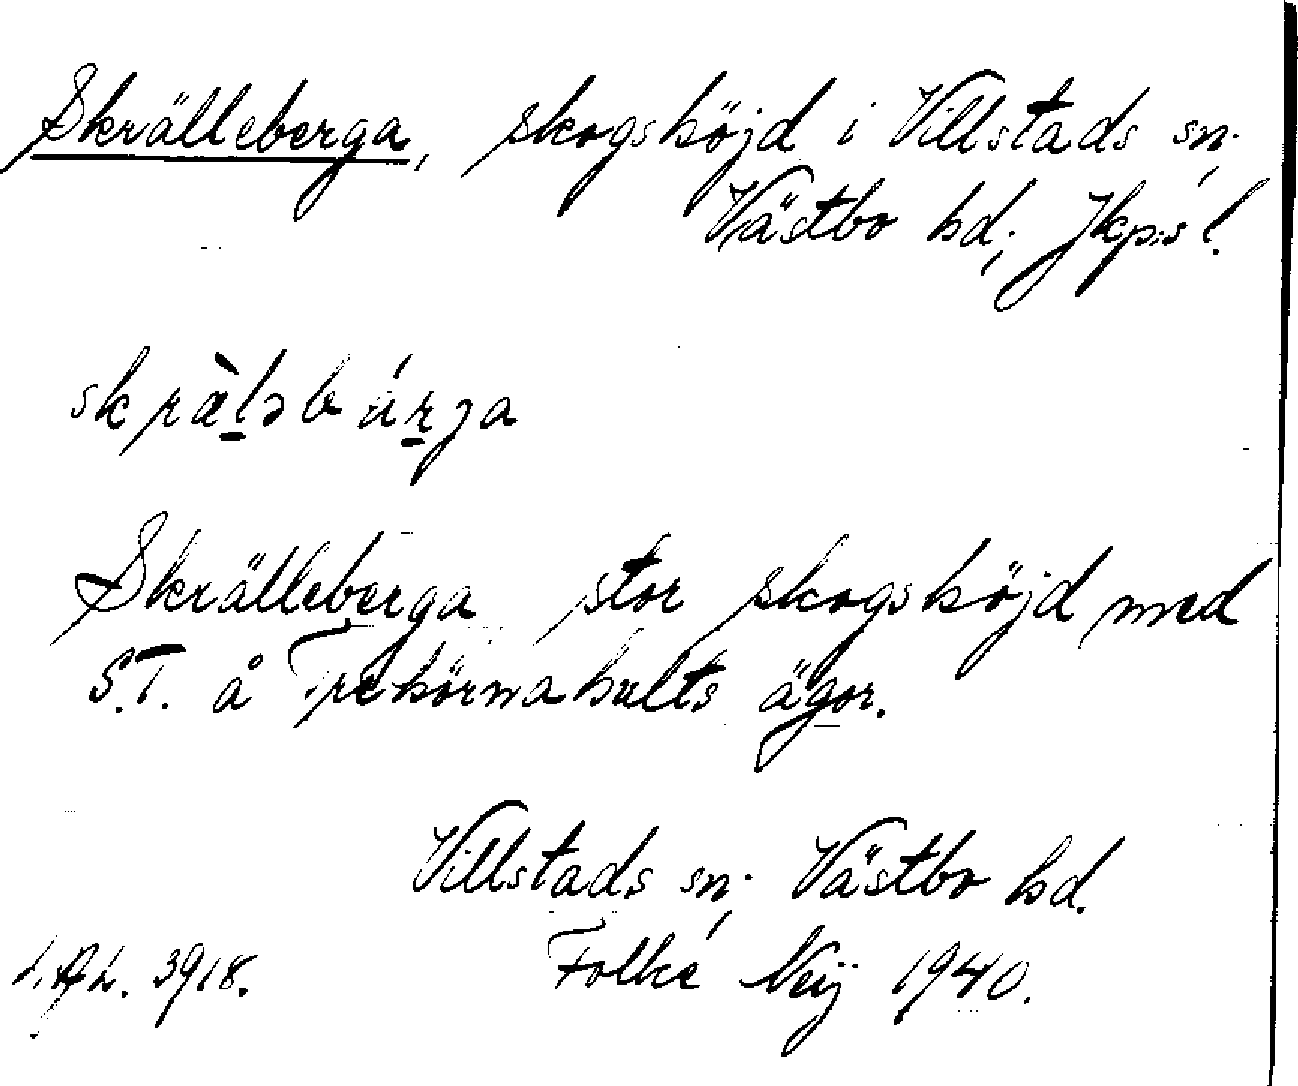 Skrälleberga, skogshöjd i Villstads sn;
Västbo hd; Jkp:s l.
skræ̀lǝbárja
Skrälleberga stor skogshöjd med
S.T. å Trehörnahults ägor.
Villstads sn; Västbo hd.
3918. Folke Neij 1940.